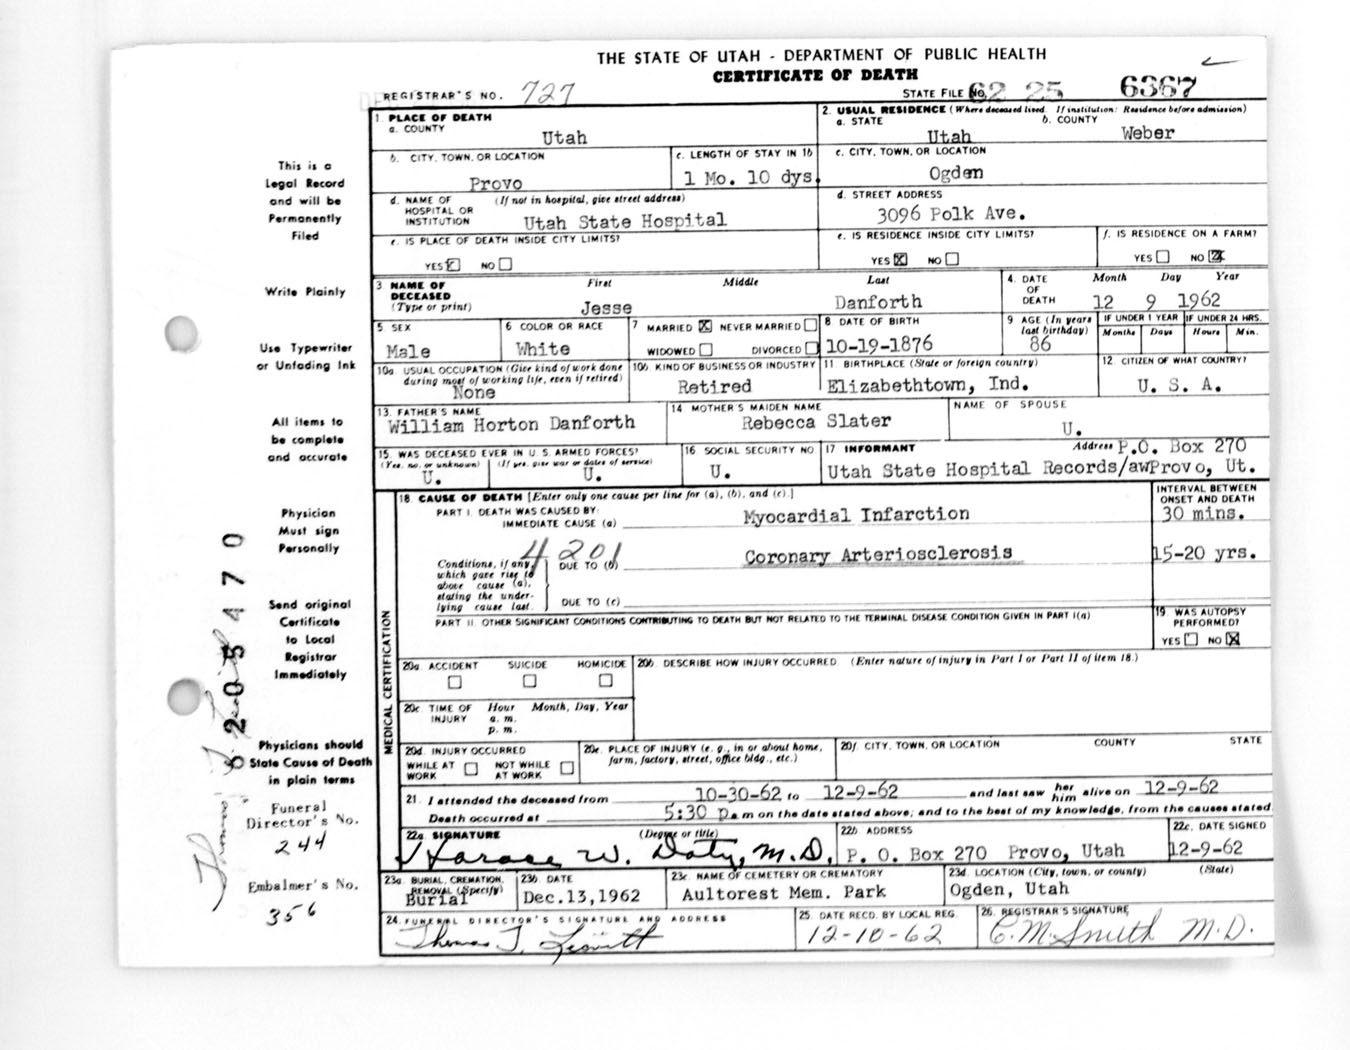 THE STATE OF UTAH - DEPARTMENT OF PUBLIC HEALTH
CERTIFICATE OF DEATH
REGISTRAR'S NO. 727
STATE FILE NO. 62 25 6367
1. PLACE OF DEATH
a. COUNTY
Utah
2. USUAL RESIDENCE (Where deceased lived. If institution: Residence before admission)
a. STATE b. COUNTY
Utah Weber
b. CITY, TOWN, OR LOCATION
Provo
c. LENGTH OF STAY IN 1b
1 Mo. 10 dys.
c. CITY, TOWN, OR LOCATION
Ogden
d. NAME OF HOSPITAL OR INSTITUTION (If not in hospital, give street address)
Utah State Hospital
d. STREET ADDRESS
3096 Polk Ave.
e. IS PLACE OF DEATH INSIDE CITY LIMITS?
YES NO
e. IS RESIDENCE INSIDE CITY LIMITS?
YES X NO
f. IS RESIDENCE ON A FARM?
YES NO X
3 NAME OF DECEASED (Type or print)
First Middle Last
Jesse Danforth
4. DATE OF DEATH
Month Day Year
12 9 1962
5. SEX
Male
6 COLOR OR RACE
White
7 MARRIED X NEVER MARRIED
WIDOWED DIVORCED
8. DATE OF BIRTH
10-19-1876
9 AGE (In years last birthday)
86
IF UNDER 1 YEAR
Months Days
IF UNDER 24 HRS.
Hours Min.
10a. USUAL OCCUPATION (Give kind of work done during most of working life, even if retired)
None
10b. KIND OF BUSINESS OR INDUSTRY
Retired
11 BIRTHPLACE (State or foreign country)
Elizabethtown, Ind.
12. CITIZEN OF WHAT COUNTRY?
U. S. A.
13. FATHER'S NAME
William Horton Danforth
14 MOTHER'S MAIDEN NAME
Rebecca Slater
NAME OF SPOUSE
U.
15. WAS DECEASED EVER IN U. S. ARMED FORCES?
(Yes, no, or unknown) (If yes, give war or dates of service)
U. U.
16 SOCIAL SECURITY NO.
U.
17 INFORMANT Address P.O. Box 270
Utah State Hospital Records/aw Provo, Ut.
MEDICAL CERTIFICATION
18. CAUSE OF DEATH [Enter only one cause per line for (a), (b), and (c).]
INTERVAL BETWEEN ONSET AND DEATH
PART I. DEATH WAS CAUSED BY:
IMMEDIATE CAUSE (a) Myocardial Infarction 30 mins.
4201
Conditions, if any, which gave rise to above cause (a), stating the underlying cause last.
DUE TO (b) Coronary Arteriosclerosis 15-20 yrs.
DUE TO (c)
PART II. OTHER SIGNIFICANT CONDITIONS CONTRIBUTING TO DEATH BUT NOT RELATED TO THE TERMINAL DISEASE CONDITION GIVEN IN PART I(a)
19. WAS AUTOPSY PERFORMED?
YES NO X
20a. ACCIDENT SUICIDE HOMICIDE
20b. DESCRIBE HOW INJURY OCCURRED. (Enter nature of injury in Part I or Part II of item 18.)
20c. TIME OF INJURY Hour Month, Day, Year
a. m.
p. m.
20d. INJURY OCCURRED
WHILE AT WORK NOT WHILE AT WORK
20e. PLACE OF INJURY (e. g., in or about home, farm, factory, street, office bldg., etc.)
20f. CITY, TOWN, OR LOCATION COUNTY STATE
21. I attended the deceased from 10-30-62 to 12-9-62 and last saw her him alive on 12-9-62
Death occurred at 5:30 p.m on the date stated above; and to the best of my knowledge, from the causes stated.
22a. SIGNATURE (Degree or title)
Horace W. Doty, M.D.
22b. ADDRESS
P. O. Box 270 Provo, Utah
22c. DATE SIGNED
12-9-62
23a. BURIAL, CREMATION, REMOVAL (Specify)
Burial
23b. DATE
Dec.13,1962
23c. NAME OF CEMETERY OR CREMATORY
Aultorest Mem. Park
23d. LOCATION (City, town, or county) (State)
Ogden, Utah
24. FUNERAL DIRECTOR'S SIGNATURE AND ADDRESS
Thomas T. Leavitt
25. DATE RECD. BY LOCAL REG.
12-10-62
26. REGISTRAR'S SIGNATURE
C. M. Smith M.D.
This is a
Legal Record
and will be
Permanently
Filed
Write Plainly
Use Typewriter
or Unfading Ink
All items to
be complete
and accurate
Physician
Must sign
Personally
Send original
Certificate
to Local
Registrar
Immediately
Physicians should
State Cause of Death
in plain terms
Funeral
Director's No.
244
Embalmer's No.
356